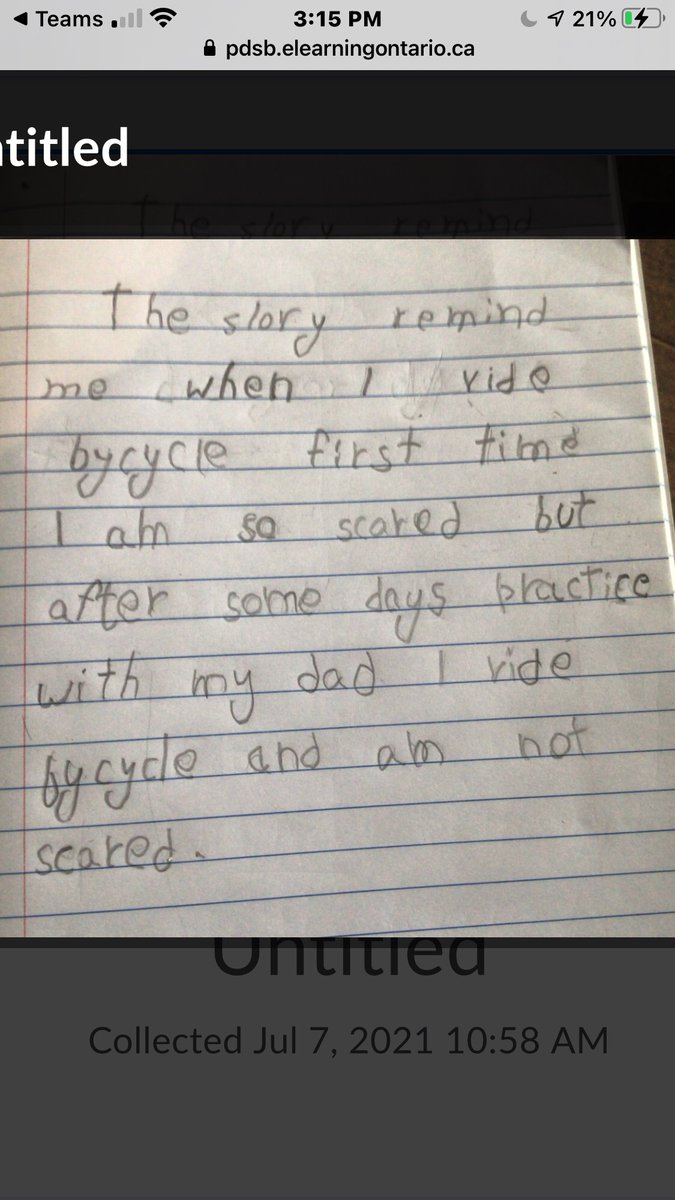 Teams
3:15 PM
21%
pdsb.elearningontario.ca
ntitled
The story remind
The story remind
me when I ride
bycycle first time
I am so scared but
after some days practice
with my dad I ride
bycycle and am not
scared.
Untitled
Collected Jul 7, 2021 10:58 AM